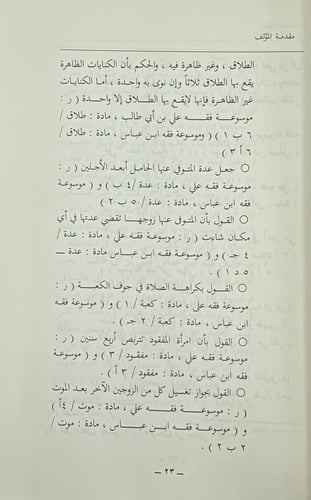 مقدمة المؤلف
الطلاق ، وغير ظاهرة فيه ، والحكم بأن الكنايات الظاهرة
يقع بها الطلاق ثلاثاً وإن نوى به واحدة ، أما الكنايات
غير الظاهرة فإنها لايقع بها الطلاق إلا واحدة ( ر :
موسوعة فقه علي بن أبي طالب ، مادة : طلاق /
٦ ب ١ ) ( وموسوعة فقه ابن عباس ، مادة : طلاق /
٦ أ ٣ )
○ جعل عدة المتوفى عنها الحامل أبعد الأجلين ( ر :
موسوعة فقه علي ، مادة : عدة / ٤ ب ) و ( موسوعة
فقه ابن عباس ، مادة : عدة / ٥ ب ٢ )
○ القول بأن المتوفى عنها زوجها تقضي عدتها في أي
مكان شاءت ( ر : موسوعة فقه علي ، مادة : عدة /
٤ جـ ) و ( موسوعة فقه ابن عباس مادة : عدة ــ
٥ د ١ ) .
○ القول بكراهة الصلاة في جوف الكعبة ( ر :
موسوعة فقه علي ، مادة : كعبة / ١ ) و ( موسوعة فقه
ابن عباس ، مادة : كعبة / ٢ جـ ) .
○ القول بأن امرأة المفقود تتربص أربع سنين ( ر :
موسوعة فقه علي ، مادة : مفقود / ٣ ) و ( موسوعة
فقه ابن عباس ، مادة : مفقود / ٣ أ ) .
○ القول بجواز تغسيل كل من الزوجين الآخر بعد الموت
( ر : موسوعة فقه علي ، مادة : موت / ٤ أ )
و ( موسوعة فقه ابن عباس ، مادة : موت /
٢ ب ٢ ) .
ــ ٢٣ ــ